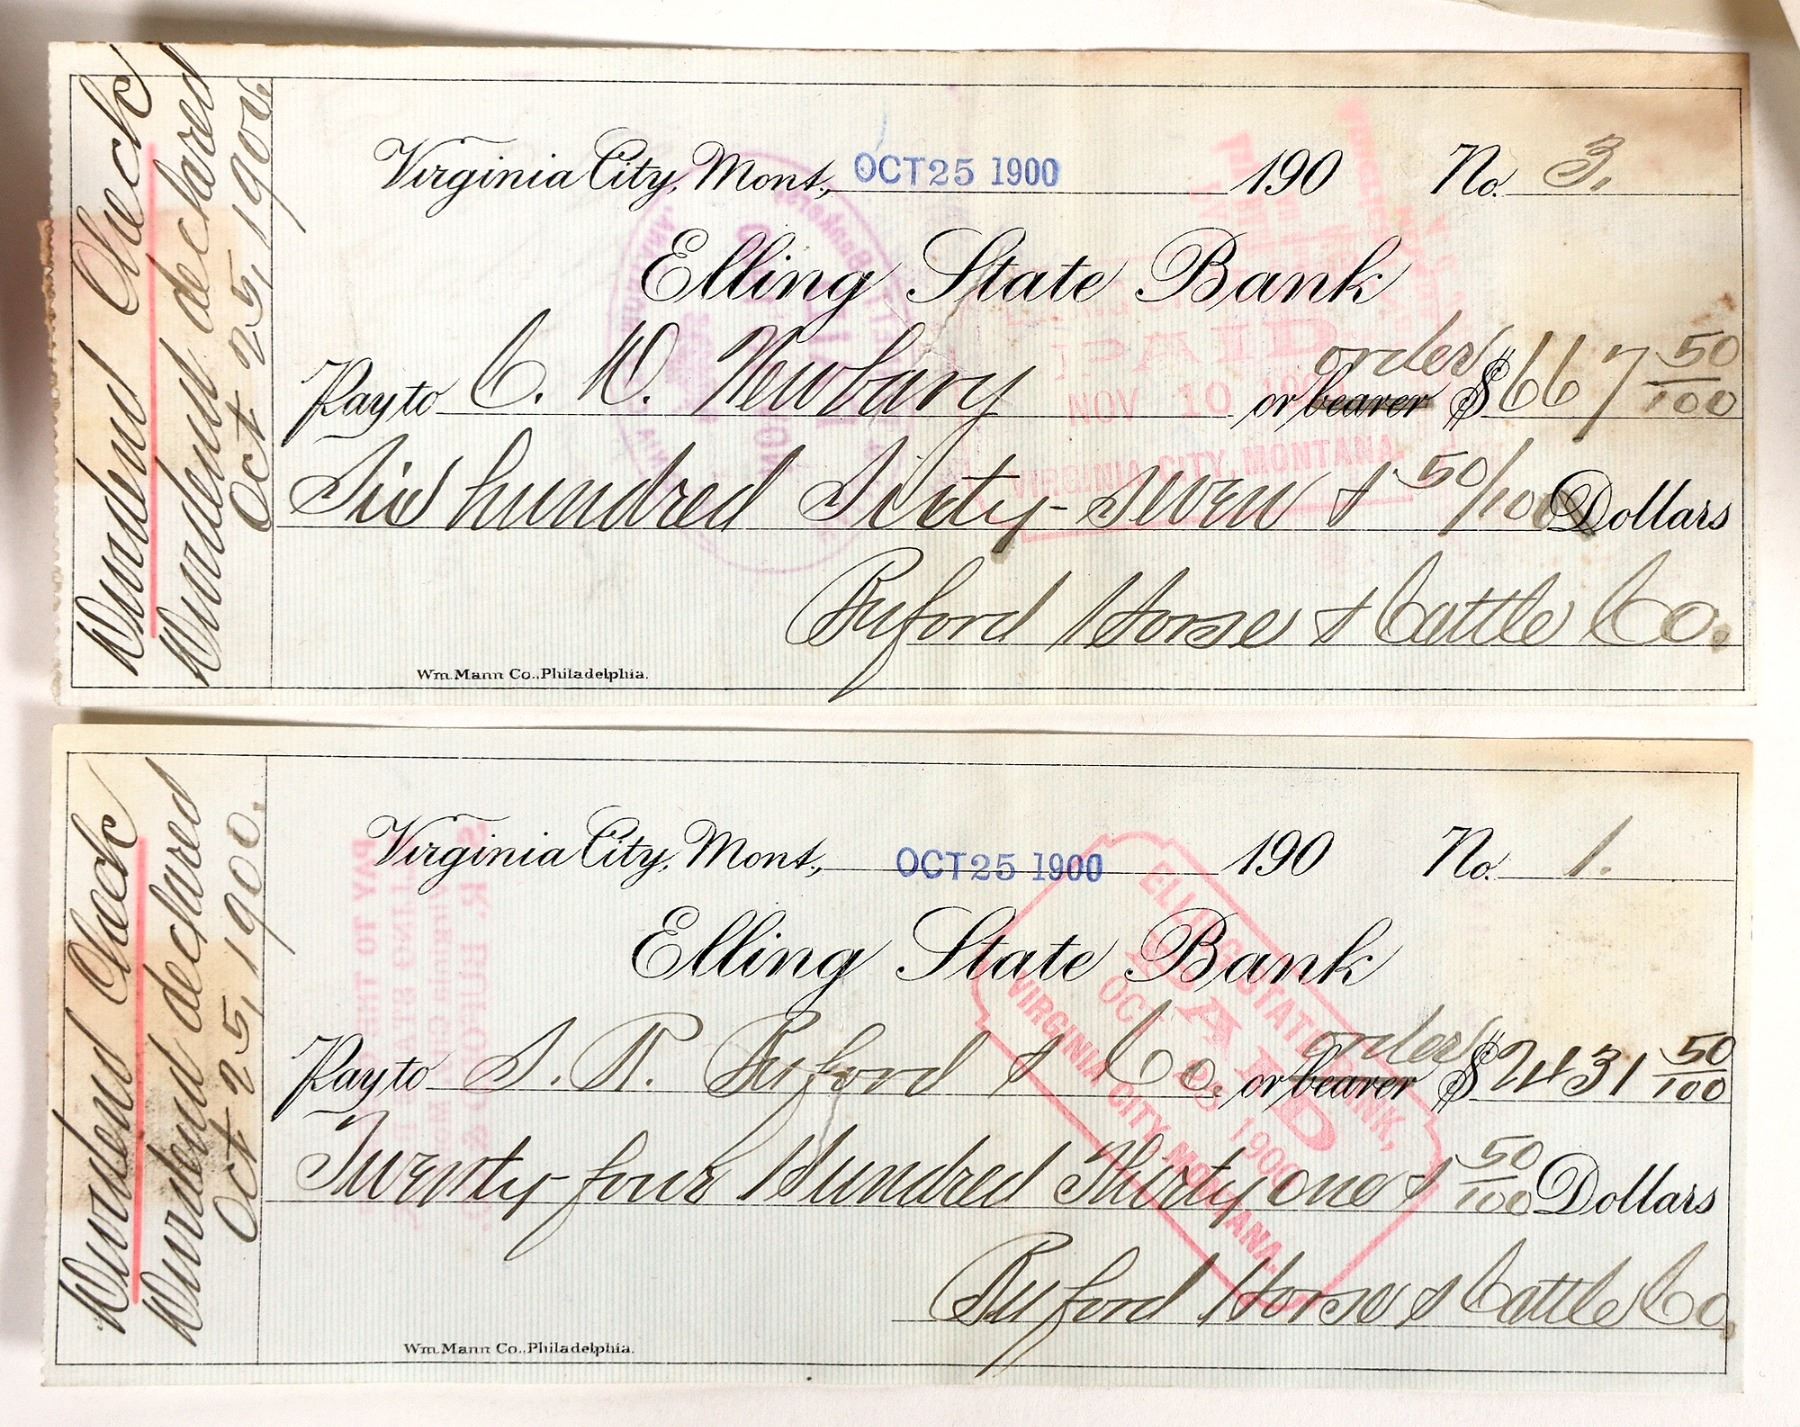 Dividend Check
Dividend declared
Oct 25, 1900.
Virginia City, Mont., OCT 25 1900 190 No. 3.
Elling State Bank
Pay to C. W. Newbury or bearer order $667 50/100
Six hundred Sixty-seven & 50/100 Dollars
Buford Horse & Cattle Co.
Wm. Mann Co., Philadelphia.
PAID
NOV 10
VIRGINIA CITY, MONTANA.
Dividend Check
Dividend declared
Oct 25, 1900.
Virginia City, Mont., OCT 25 1900 190 No. 1.
Elling State Bank
Pay to S. R. Buford & Co. or bearer order $2431 50/100
Twenty-four Hundred Thirty one & 50/100 Dollars
Buford Horse & Cattle Co.
Wm. Mann Co., Philadelphia.
ELLING STATE BANK,
PAID
OCT 1900
VIRGINIA CITY, MONTANA.